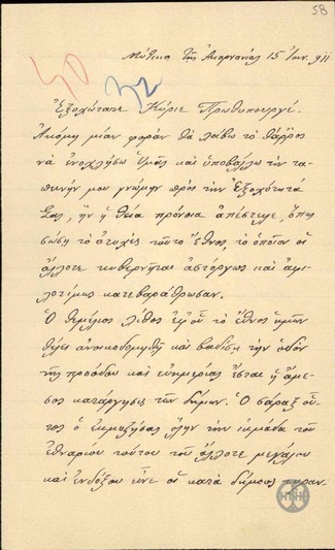 58
50
32
Μύτικα τῆς Ἀκαρνανίας 15 Ἰουν. 911
Ἐξοχώτατε Κύριε Πρωθυπουργέ.
Ἀκόμη μίαν φοράν θὰ λάβω τὸ θάρρος
νὰ ἐνοχλήσω Ὑμᾶς καὶ ὑποβάλλω τὴν τα-
πεινήν μου γνώμην πρὸς τὴν Ἐξοχότητά
Σας, ἣν ἡ θεία πρόνοια ἀπέστειλε, ὅπως
σώσῃ τὸ ἀτυχὲς τοῦτο ἔθνος, τὸ ὁποῖον οἱ
ἄλλοτε κυβερνῆται ἀστόργως καὶ ἀφι-
λοτίμως κατεβαράθρωσαν.
Ὁ θεμέλιος λίθος ἐφ' οὗ τὸ ἔθνος ἡμῶν
θέλει ἀνοικοδομηθῇ καὶ βαδίσῃ τὴν ὁδὸν
τῆς προόδου καὶ εὐημερίας ἔσται ἡ ἄμε-
σος κατάργησις τῶν δήμων. Ὁ σάραξ οὗ-
τος ὁ ἐκμυζήσας ὅλην τὴν ἰκμάδα τοῦ
ἐθναρίου τούτου τοῦ ἄλλοτε μεγάλου
καὶ ἐνδόξου εἶνε οἱ κατὰ δήμους τυραν-